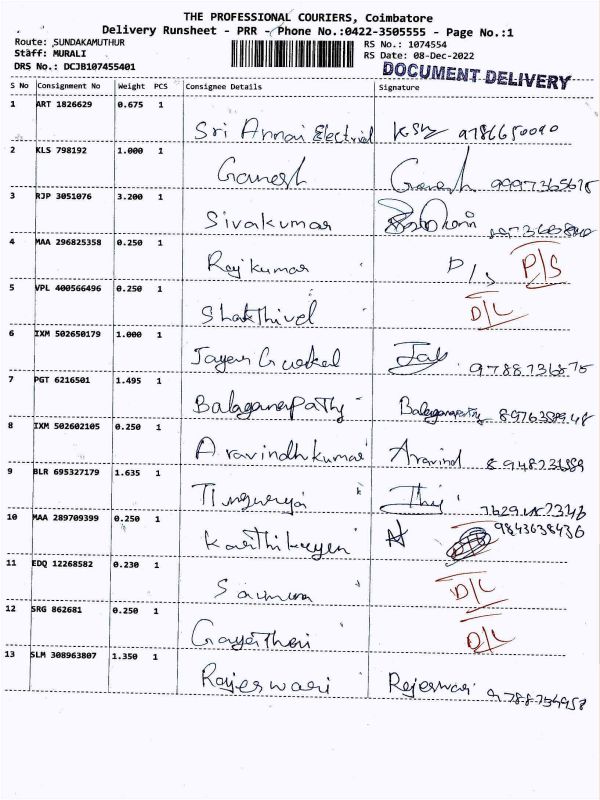 THE PROFESSIONAL COURIERS, Coimbatore
Delivery Runsheet - PRR - Phone No.:0422-3505555 - Page No.:1
Route: SUNDAKAMUTHUR RS No.: 1074554
Staff: MURALI RS Date: 08-Dec-2022
DRS No.: DCJB107455401 DOCUMENT DELIVERY
S No Consignment No Weight PCS Consignee Details Signature
1 ART 1826629 0.675 1
Sri Annai Electrical 9786650090
2 KLS 798192 1.000 1
Ganesh Ganesh 9997365615
3 RJP 3051076 3.200 1
Sivakumar
4 MAA 296825358 0.250 1
Rajkumar P/S P/S
5 VPL 400566496 0.250 1
Shakthivel D/L
6 IXM 502650179 1.000 1
Jayen 9788736875
7 PGT 6216501 1.495 1
Balaganapathy Balaganapathy 8976388948
8 IXM 502602105 0.250 1
Aravindhkumar Aravind
9 BLR 695327179 1.635 1
10 MAA 289709399 0.250 1 9843638436
Karthikeyen
11 EDQ 12268582 0.230 1
D/L
12 SRG 862681 0.250 1
Gayathori D/L
13 SLM 308963807 1.350 1
Rajeswari Rajeswari 9788754958